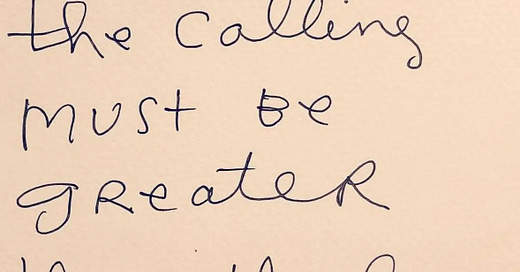 the calling
must Be
gReateR